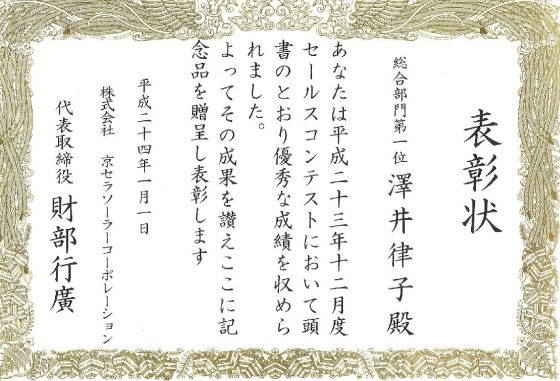 表彰状
総合部門第一位　澤井律子殿
あなたは平成二十三年十二月度
セールスコンテストにおいて頭
書のとおり優秀な成績を収めら
れました。
よってその成果を讃えここに記
念品を贈呈し表彰します
平成二十四年一月一日
株式会社　京セラソーラーコーポレーション
代表取締役　財部行廣